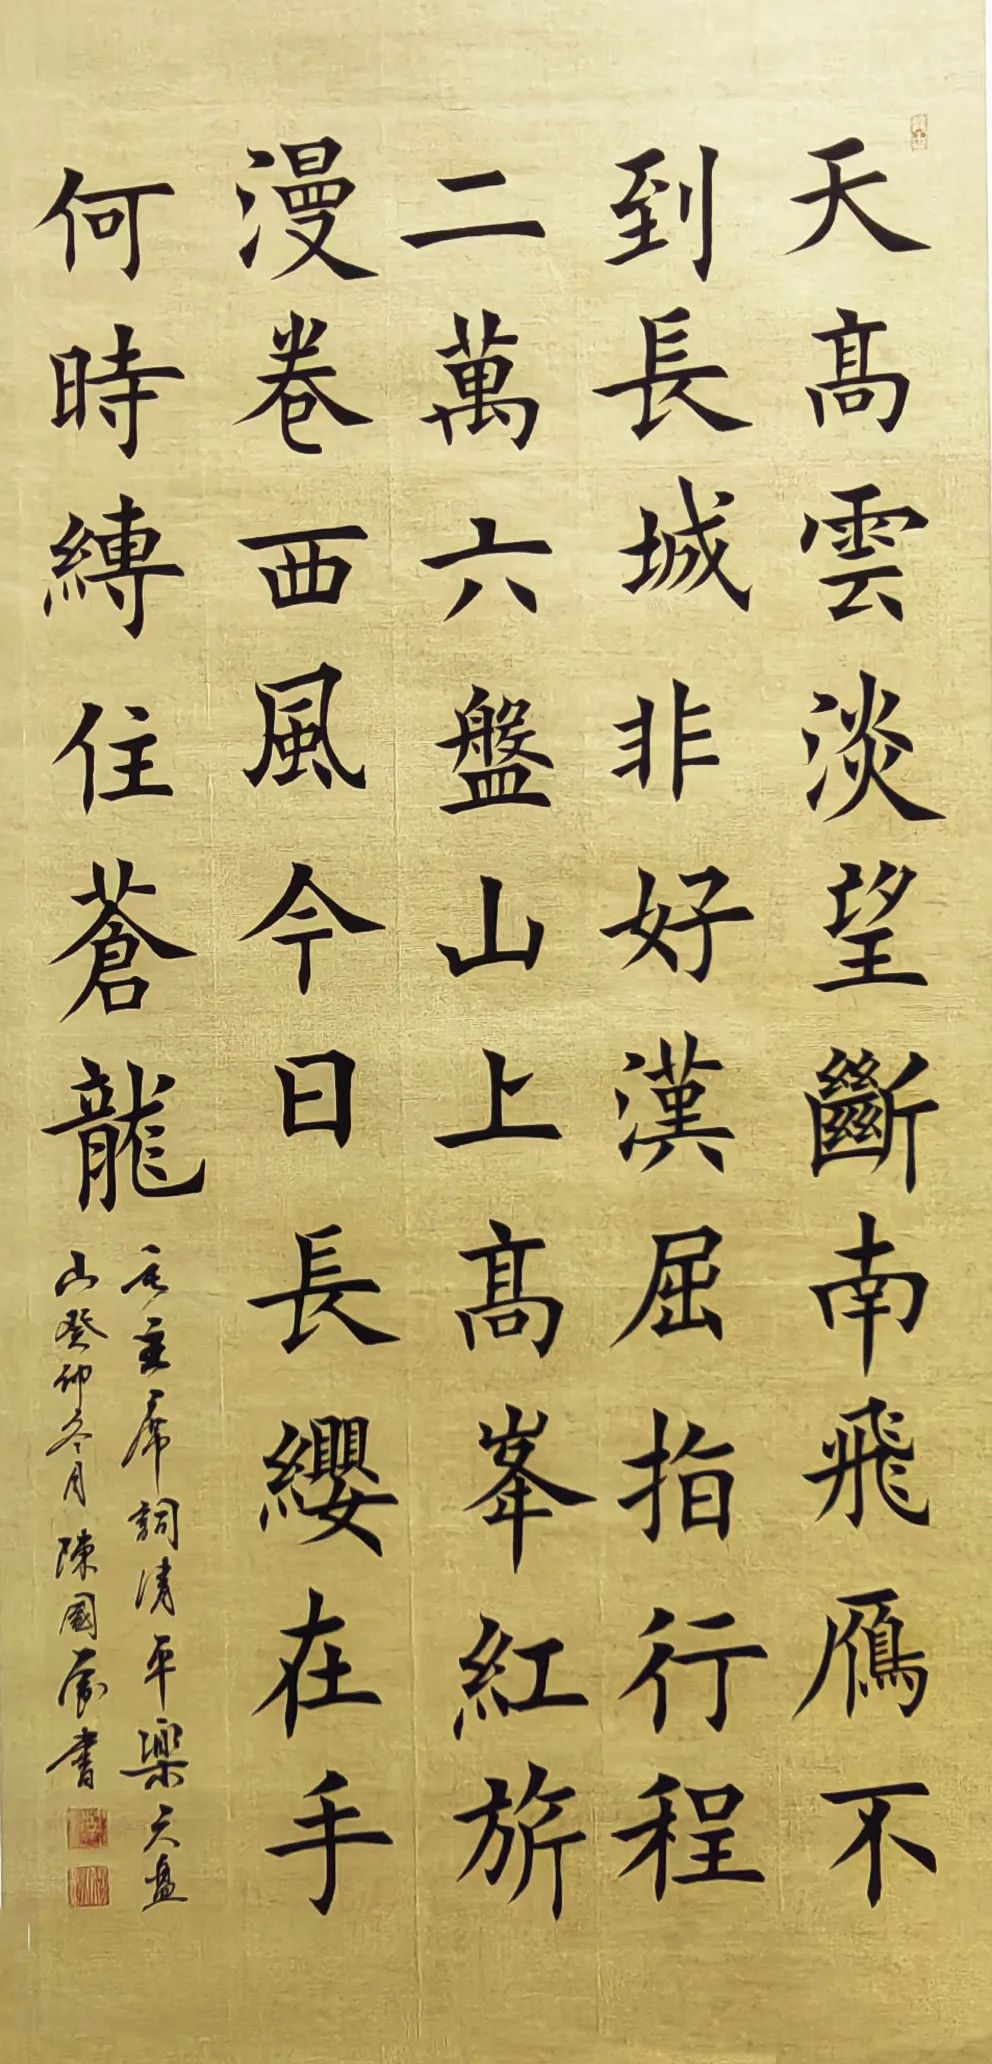 天髙雲淡望斷南飛鴈不
到長城非好漢屈指行程
二萬六盤山上髙峯紅旂
漫卷西風今日長纓在手
何時縛住蒼龍
毛主席詞清平樂六盤
山癸卯冬月陳國書